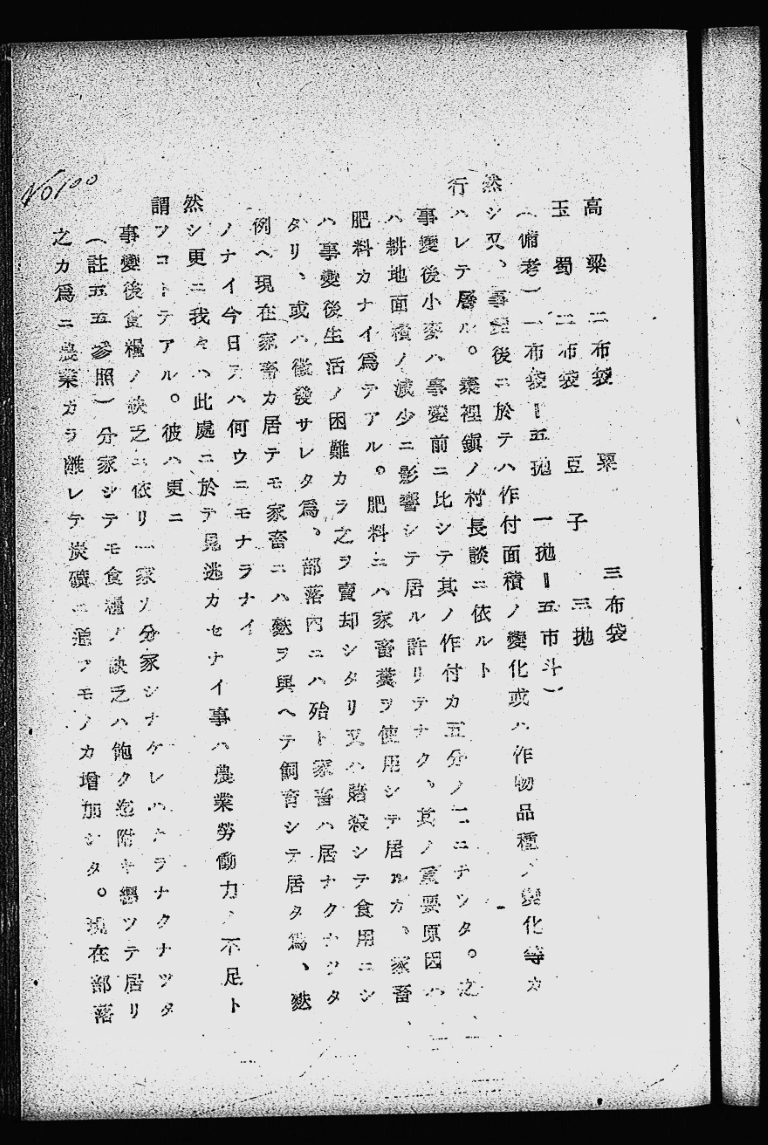 高粱 二布袋 粟 三布袋
玉蜀 二布袋 豆子 三抛
(備考) 一布袋ー五抛 一抛ー五市斗)
然シ又、事變後ニ於テハ作付面積ノ變化或ハ作物品種ノ變化等カ
行ハレテ居ル。 裡鎭ノ村長談ニ依ルト
事變後小麥ハ事變前ニ比シテ其ノ作付カ五分ノ二ニナツタ。之
ハ耕地面積ノ減少ニ影響シテ居ル許リテナク、其ノ重要原因ハ
肥料カナイ爲テアル。肥料ニハ家畜糞ヲ使用シテ居ルカ、家畜
ハ事變後生活ノ困難カラ之ヲ賣却シタリ又ハ賭殺シテ食用ニシ
タリ、或ハ徵發サレタ爲、部落內ニハ殆ト家畜ハ居ナクナツタ
例ヘ現在家畜カ居テモ家畜ニハ麩ヲ與ヘテ飼育シテ居タ爲、麩
ノナイ今日テハ何ウニモナラナイ
然シ更ニ我々ハ此處ニ於テ見逃カセナイ事ハ農業勞働力ノ不足ト
謂フコトテアル。彼ハ更ニ
事變後食糧ノ缺乏ニ依リ一家ヲ分家シナケレハナラナクナツタ
(註五五參照) 分家シテモ食糧ノ缺乏ハ飽ク迄附キ纒ツテ居リ
之カ爲ニ農業カラ離レテ炭礦ニ通フモノカ增加シタ。現在部落
No100